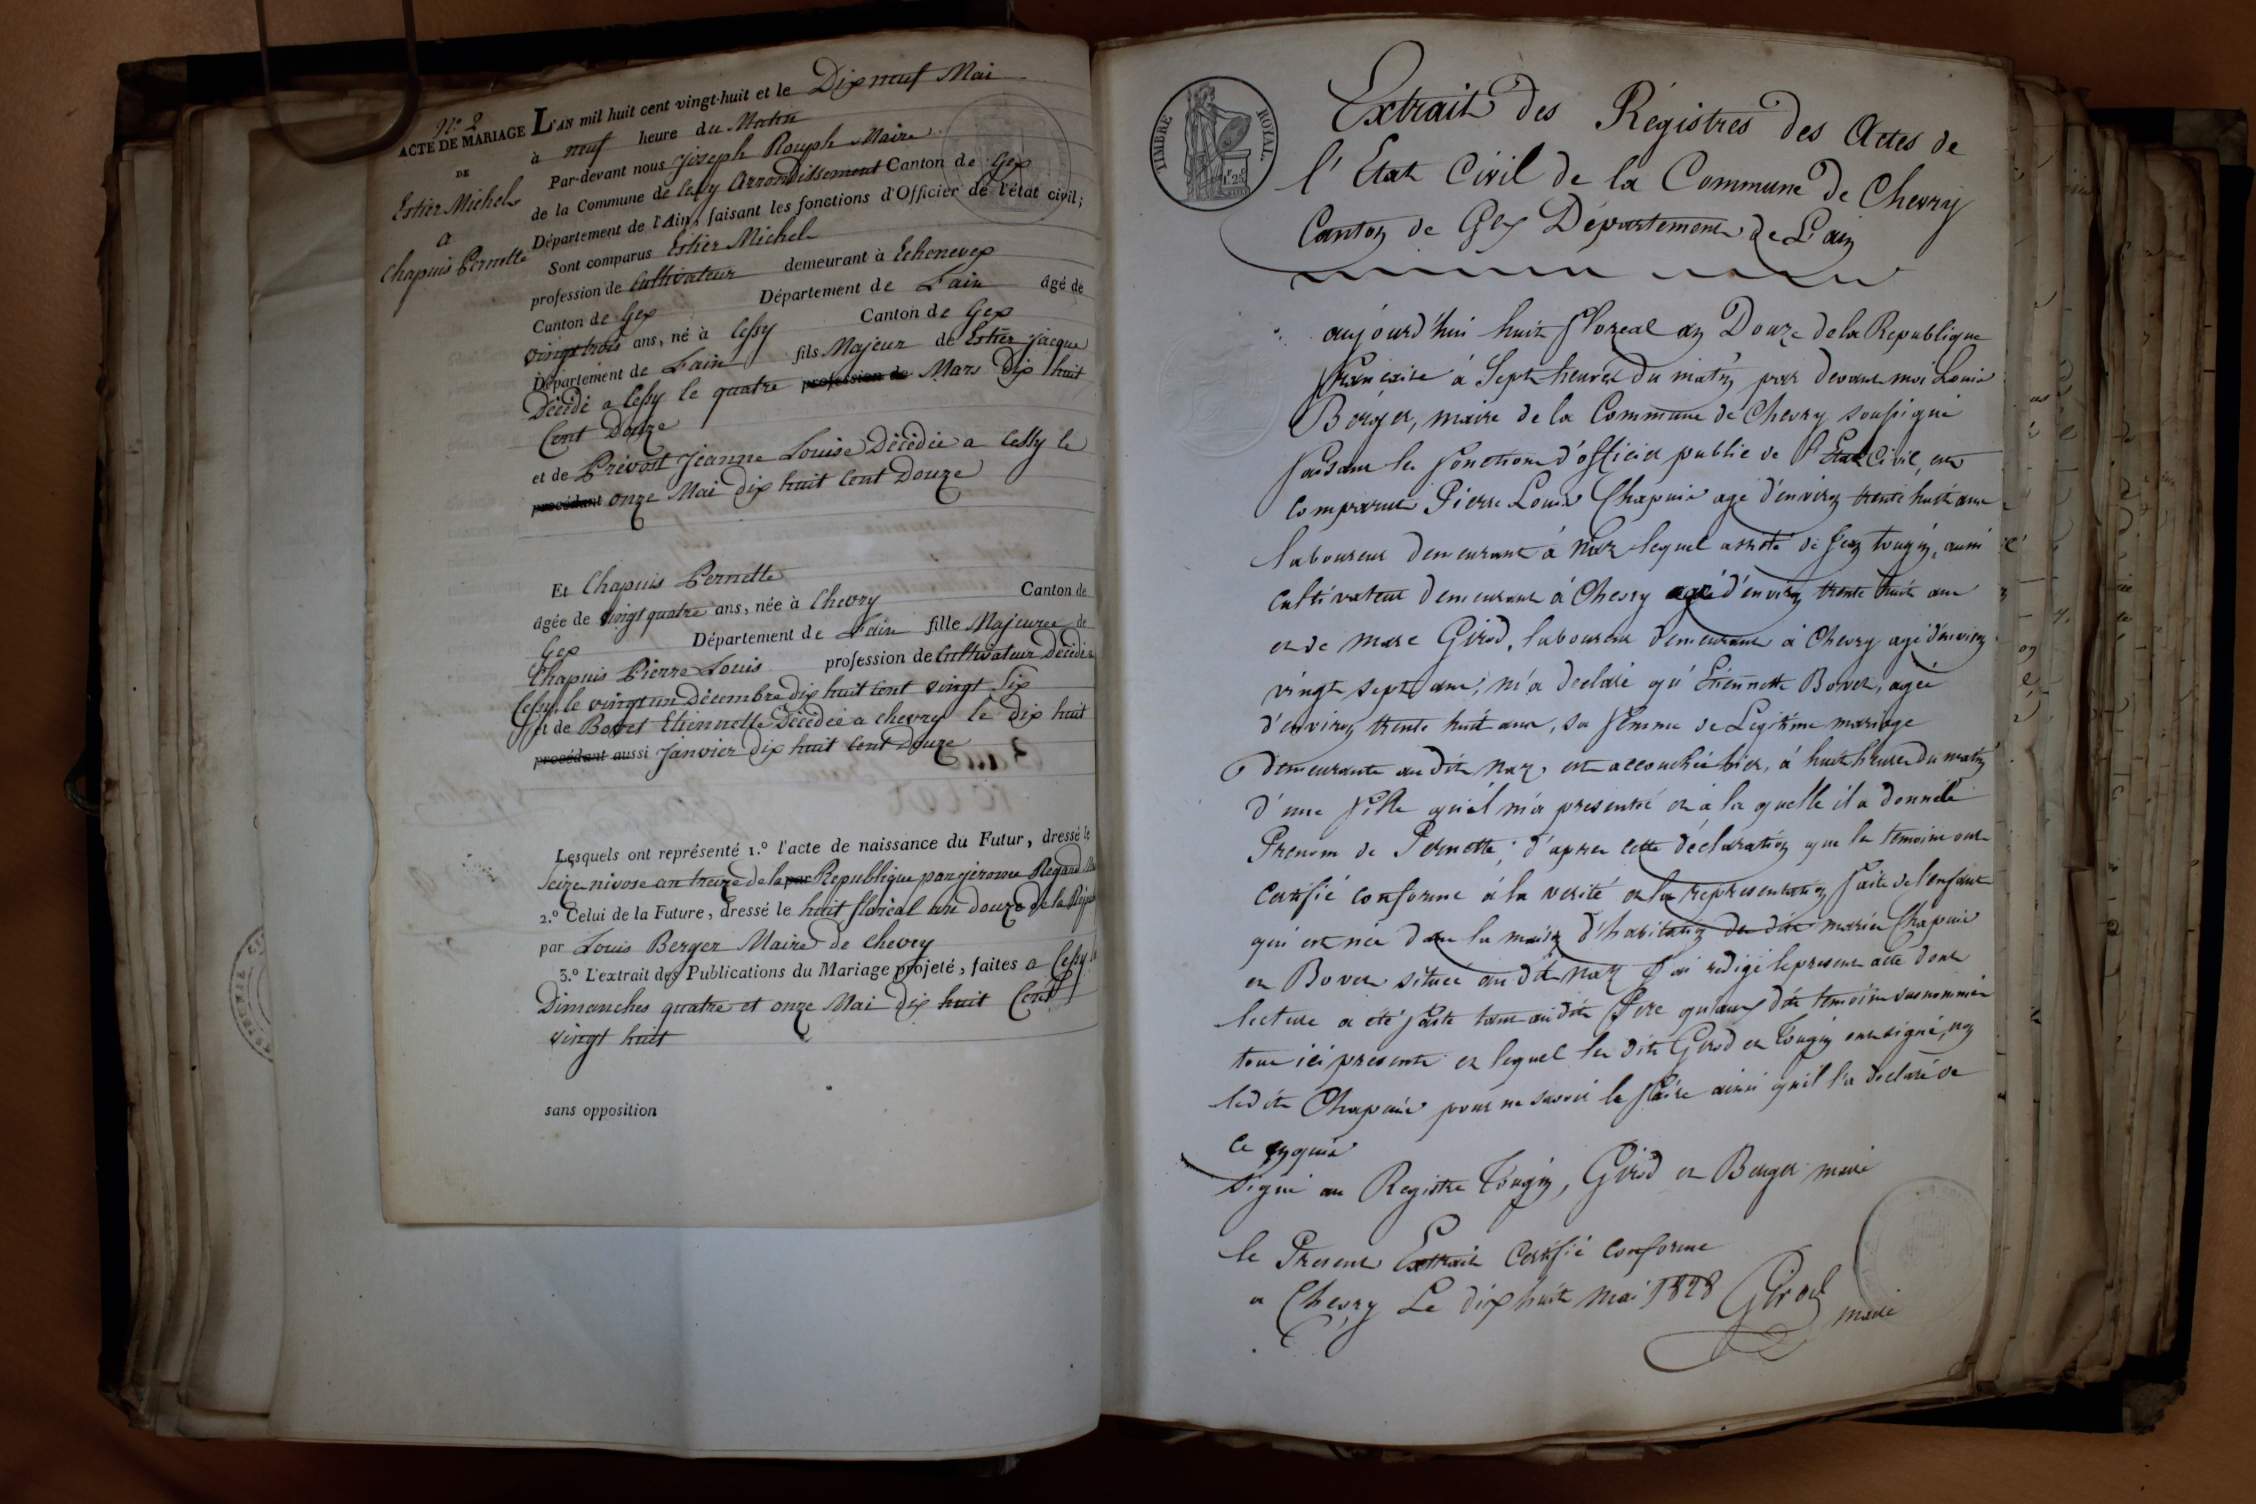 N.º 2
ACTE DE MARIAGE
DE
Estier Michel
a
Chapuis Pernette
L'AN mil huit cent vingt-huit et le Dix neuf Mai
à neuf heure du Matin
Par-devant nous Joseph Rouph Maire
de la Commune de Cessy Arrondissement Canton de Gex
Département de l'Ain, faisant les fonctions d'Officier de l'état civil;
Sont comparus Estier Michel
profession de Cultivateur demeurant à Echenevex
Canton de Gex Département de Lain âgé de
vingt trois ans, né à Cessy Canton de Gex
Département de Lain fils Majeur de Estier Jacque
Décédé a Cessy le quatre profession de Mars dix huit
Cent Douze
et de Prévost Jeanne Louise Décédée a Cessy le
procédant onze Mai dix huit Cent Douze
Et Chapuis Pernette
âgée de vingt quatre ans, née à Chevry Canton de
Gex Département de Lain fille Majeure de
Chapuis Pierre Louis profession de Cultivateur Décédé a
Cessy le vingt un Décembre dix huit Cent vingt Six
et de Bovet Etiennette Décédée a chevry le dix huit
procédant aussi Janvier dix huit Cent Douze
Lesquels ont représenté 1.º l'acte de naissance du Futur, dressé le
Seize nivose an treize de la par Republique par jerome Regard
2.º Celui de la Future, dressé le huit floréal an douze de la Répub
par Louis Berger Maire de Chevry
3.º L'extrait des Publications du Mariage projeté, faites a Cessy
Dimanches quatre et onze Mai dix huit Cent
vingt huit
sans opposition
TIMBRE ROYAL
1f 25c
Extrait des Régistres des Actes de
l'Etat Civil de la Commune de Chevry
Canton de Gex Département de L'ain
aujourd'hui huit floreal an Douze de la Republique
française à Sept heures du matin par devant moi Louis
Berger, maire de la Commune de Chevry soussigné
faisant les fonctions d'officier public de l'Etat Civil, est
comparut Pierre Louis Chapuis agé d'environ trente huit ans
laboureur demeurant à Naz lequel assisté de Jean Tougin, aussi
cultivateur demeurant à Chevry agé d'environ trente huit ans
et de Marc Girod, laboureur demeurant à Chevry agé d'environ
vingt sept ans, m'a declaré qu'Etiennette Bovet, agée
d'environ trente huit ans, sa femme de Légitime mariage
demeurante au dit Naz, est accouchée hier, à huit heures du matin
d'une fille qu'il m'a presenté et à la quelle il a donné le
Prenom de Pernette; d'apres cette déclaration que les temoins ont
certifié conforme à la verité et la représentation faite de l'enfant
qui est née dans la maison d'habitation des dits mariés Chapuis
et Bovet située au dit Naz J'ai redigé le present acte dont
lecture a été faite tant au dit Pere qu'aux dits temoins susnommés
tous ici presents et lequel les dits Girod et Tougin ont signé, non
ledit Chapuis pour ne savoir le faire ainsi qu'il l'a déclaré de
ce enquis
signé au Registre Tougin, Girod et Berger maire
le Present Extrait Certifié Conforme
a Chevry Le dix huit Mai 1828 Girod
maire